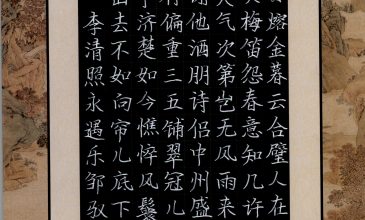 熔金暮云合璧人在
梅笛怨春意知几许
气次第岂无风雨来
他酒朋诗侣中州盛
偏重三五铺翠冠儿
济楚如今憔悴风鬟
去不如向帘儿底下
李清照永遇乐邹驭